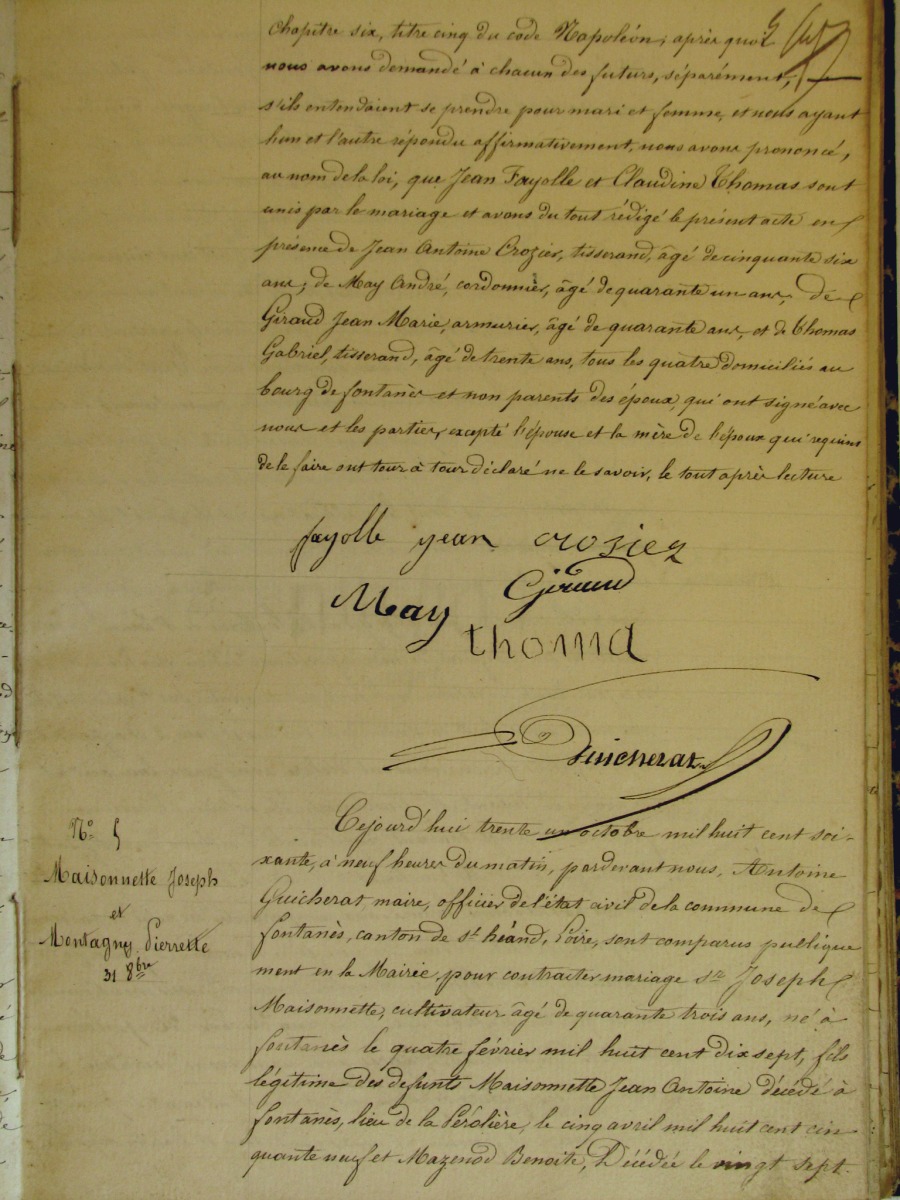 chapitre six, titre cinq du code Napoléon; après quoi
nous avons demandé à chacun des futurs, séparément,
s'ils entendaient se prendre pour mari et femme, et nous ayant
l'un et l'autre répondu affirmativement, nous avons prononcé,
au nom de la loi, que Jean Fayolle et Claudine Thomas sont
unis par le mariage et avons du tout rédigé le présent acte en
présence de Jean Antoine Crozier, tisserand, âgé de cinquante six
ans; de May André, cordonnier, âgé de quarante un ans, de
Giraud Jean Marie, armurier, âgé de quarante ans, et de Thomas
Gabriel, tisserand, âgé de trente ans, tous les quatre domiciliés au
bourg de fontanès et non parents des époux, qui ont signé avec
nous et les parties, excepté l'épouse et la mère de l'époux qui requises
de le faire ont tour à tour déclaré ne le savoir, le tout après lecture
fayolle jean crozier
Giraud
May
thoma
Guicherat
N° 5
Maisonnette Joseph
et
Montagny Pierrette
31 8bre
Cejourd'hui trente un octobre mil huit cent soi-
xante, à neuf heures du matin, pardevant nous, Antoine
Guicherat maire, officier de l'état civil de la commune de
fontanès, canton de St héand, Loire, sont comparus publique
ment en la Mairie, pour contracter mariage sr Joseph
Maisonnette, cultivateur âgé de quarante trois ans, né à
fontanès le quatre février mil huit cent dix sept, fils
légitime des defunts Maisonnette Jean Antoine décédé à
fontanès, lieu de la Pérolière, le cinq avril mil huit cent cin
quante neuf et Mazenod Benoite, Décédée le vingt sept